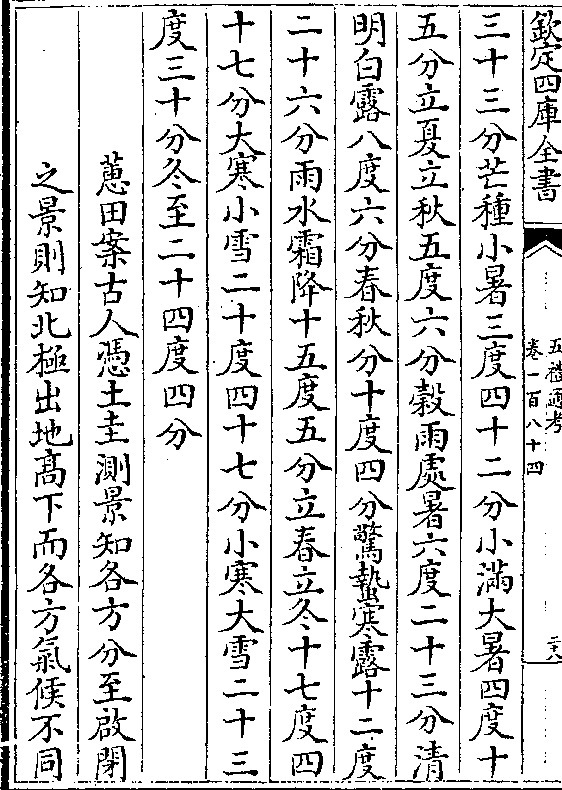 欽定四庫全書
五禮通考
卷一百八十四
二十八
三十三分芒種小暑三度四十二分小滿大暑四度十
五分立夏立秋五度六分穀雨處暑六度二十三分清
明白露八度六分春秋分十度四分驚蟄寒露十二度
二十六分雨水霜降十五度五分立春立冬十七度四
十七分大寒小雪二十度四十七分小寒大雪二十三
度三十分冬至二十四度四分
蕙田案古人憑土圭測景知各方分至啟閉
之景則知北極出地髙下而各方氣候不同